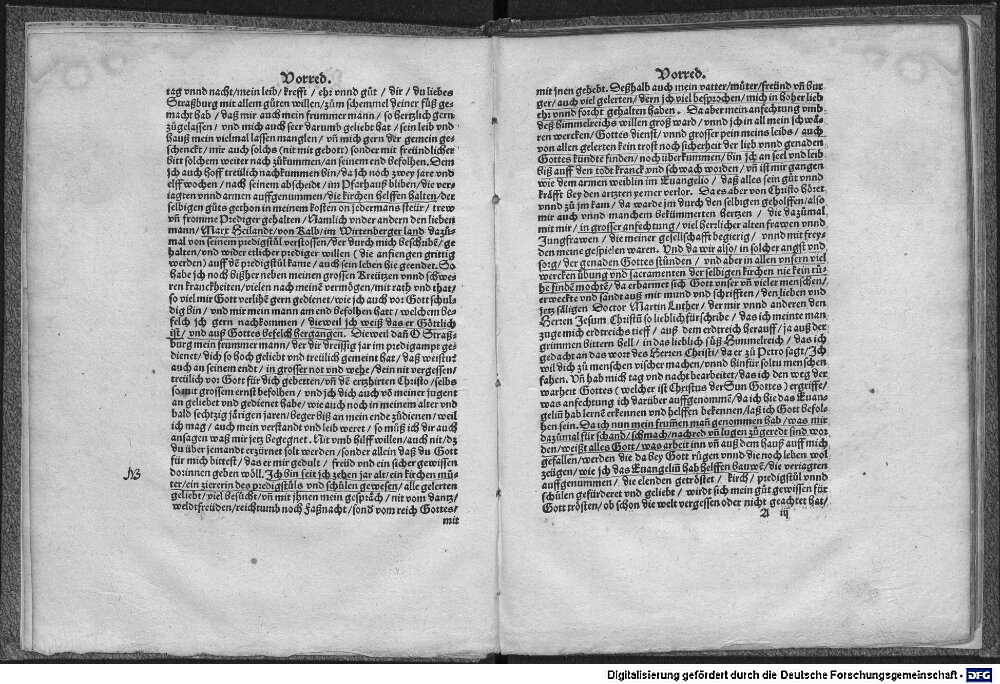 Vorred.
tag vnnd nacht/mein leib/ krefft / ehr vnnd gůt / dir / du liebes
Straßburg mit allem gůten willen/zům schemmel deiner füß ge-
macht hab / daß mir auch mein frummer mann / so hertzlich gern
zůgelassen / vnd mich auch seer darumb geliebt hat / sein leib vnd
hauß mein vielmal lassen manglen / vñ mich gern der gemein ge-
schenckt / mir auch solchs (nit mit gebott) sonder mit freündlicher
bitt solchem weiter nach zůkummen/an seinem end befolhen. Dem
ich auch hoff treülich nachkummen bin/da ich noch zwey jare vnd
elff wochen / nach seinem abscheidt / im Pfarhauß bliben/die ver-
iagten vnnd armen auffgenummen/die kirchen helffen halten/der
selbigen gůts gethon in meinem kosten on jedermans steür / trew
vñ fromme Prediger gehalten / Namlich vnder andern den lieben
mann/ Marx Heilandt/von Kalb/im Wirtenberger land dazů-
mal von seinem predigstůl verstossen/der durch mich beschribẽ/ge
halten/vnd wider etlicher prediger willen (die anfiengen grittig
werden) auff dẽ predigstůl kame / auch sein leben hie geendet. So
habe ich noch bißher neben meinen grossen Kreützen vnnd schwe-
ren kranckheiten/vielen nach meinẽ vermögen/mit rath vnd that/
so viel mir Gott verlihẽ gern gedienet/wie ich auch vor Gott schul
dig bin/ vnd mir mein mann am end befolhen hatt / welchem be-
felch ich gern nachkommen / dieweil ich weiß das er Götlich
ist / vnd auß Gottes befelch hergangen. Dieweil dañ O Straß-
burg mein frummer mann/ der dir dreissig jar im predigampt ge-
dienet/dich so hoch geliebt vnd treülich gemeint hat / daß weistu:
auch an seinem endt / in grosser not vnd wehe/dein nit vergessen/
treülich vor Gott für dich gebetten/vñ dem ertzhirten Christo/selbs
so mit grossem ernst befolhen / vnd ich dich auch vō meiner jugent
an geliebet vnd gedienet habe/wie auch noch in meinem alter vnd
bald sechtzig järigen jaren/beger biß an mein ende zůdienen/weil
ich mag / auch mein verstandt vnd leib weret / so můß ich dir auch
ansagen waß mir jetz begegnet. Nit vmb hilff willen/auch nit/dz
du über jemandt erzürnet solt werden/sonder allein daß du Gott
für mich bittest/das er mir gedult / freüd vnd ein sicher gewissen
dorinnen geben wöll. Ich bin seit ich zehen jar alt/ein kirchen můt-
ter/ein ziererin des predigstůls vnd schůlen gewesen/alle gelerten
geliebt/viel besůcht/vñ mit jhnen mein gespräch/ nit vom dantz/
weldtfreüden/reichtumb noch Faßnacht/sond vom reich Gottes/
mit
NB
Vorred.
mit jnen gehebt. Deßhalb auch mein vatter/můter/freünd vñ bur
ger/auch viel gelerten/dern ich viel besprochen/mich in hoher lieb
ehr vnnd forcht gehalten haben. Da aber mein anfechtung vmb
deß himmelreichs willen groß ward / vnnd ich in all mein schwä-
ren wercken/Gottes dienst/ vnnd grosser pein meins leibs / auch
von allen gelerten kein trost noch sicherheit der lieb vnd genaden
Gottes kündte finden/noch überkummen/bin ich an seel vnd leib
biß auff den todt kranck vnd schwach worden / vñ ist mir gangen
wie dem armen weiblin im Euangelio / daß alles sein gůt vnnd
kräfft bey den artzten verlor. Da es aber von Christo höret
vnnd zů jm kam / da warde jm durch den selbigen geholffen/also
mir auch vnnd manchem bekümmerten hertzen / die dazůmal
mit mir / in grosser anfechtung / viel herrlicher alten frawen vnnd
Jungfrawen / die meiner gesellschafft begierig / vnnd mit freys
den meine gespielen waren. Vnd da wir also/in solcher angst vnd
sorg/der genaden Gottes stůnden / vnd aber in allen vnsern viel
wercken übung vnd sacramenten der selbigen kirchen nie kein rů-
he findẽ mochtẽ/da erbarmet sich Gott vnser vñ vieler menschen/
erweckte vnd sandt auß mit mund vnd schrifften/den lieben vnd
jetz säligen Doctor Martin Luther / der mir vnnd anderen den
Herren Jesum Christũ so lieblich fürschribe / das ich meinte man
züge mich erdtreichs tieff / auß dem erdtreich herauff / ja auß der
grimmen bittern hell / in das lieblich süß Himmelreich / das ich
gedacht an das wort des Herren Christi/da er zů Petro sagt/Ich
wil dich zů menschen vischer machen / vnnd hinfür soltu menschen
fahen. Vñ hab mich tag vnd nacht bearbeitet/das ich den weg der
warheit Gottes ( welcher ist Christus der Sun Gottes ) ergriffe/
was anfechtung ich darüber auffgenommẽ/da ich hie das Euan-
geliũ hab lernẽ erkennen vnd helffen bekennen/laß ich Gott befol-
hen sein. Da ich nun mein frumẽ mañ genommen hab / was mir
dazůmal für schand/schmach/nachred vñ lugen zůgeredt sind wor
den/weißt alles Gott/was arbeit inn vñ auß dem hauß auff mich
gefallen/werden die da bey Gott růgen vnd die noch leben wol
zeügen / wie ich das Euangeliũ hab helffen bauwẽ/die veriagten
auffgenummen / die elenden getröstet / kirch / predigstůl vnnd
schůlen gefürderet vnd geliebt / wirdt sich mein gůt gewissen für
Gott trösten/ob schon die welt vergessen oder nicht geachtet hat/
A iij
Digitalisierung gefördert durch die Deutsche Forschungsgemeinschaft - DFG